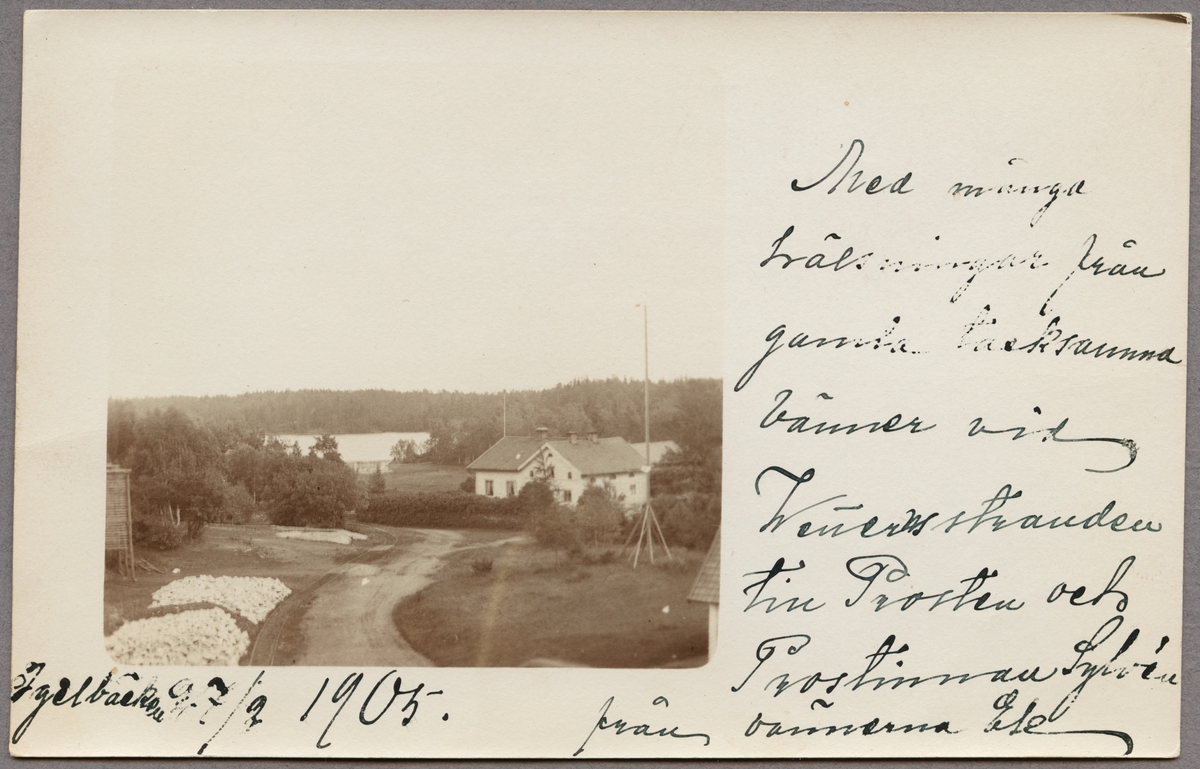 Med många
hälsningar från
gamla tacksamma
vänner vid
Wenersstranden
till Prosten och
Prostinnan Sylvén
från vännerna Ek
Igelbäcken 27/2 1905.